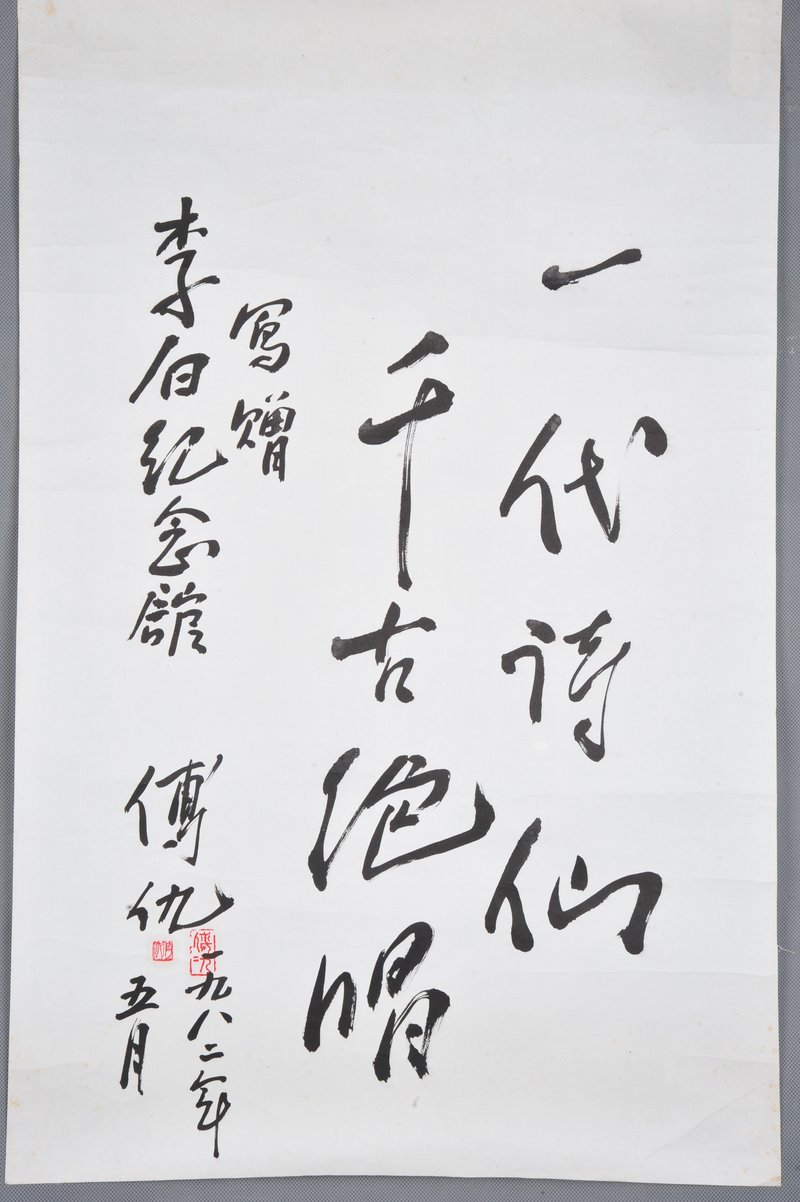 一代诗仙
千古绝唱
写赠
李白纪念館
傅仇
一九八二年
五月